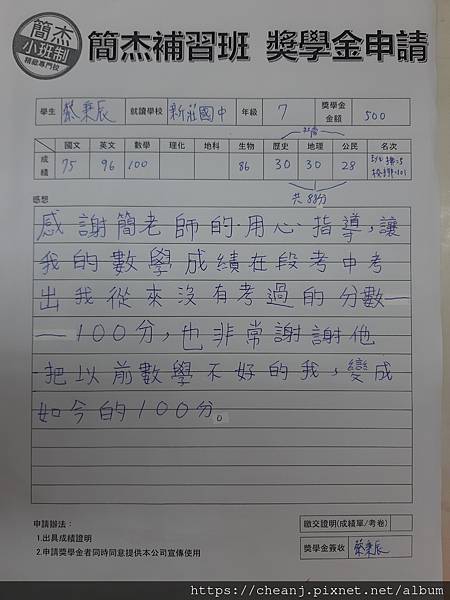 簡杰
小班制
精緻專門校
簡杰補習班 獎學金申請
學生 蔡秉辰 就讀學校 新莊國中 年級 7 獎學金金額 500
國文 英文 數學 理化 地科 生物 歷史 地理 公民 名次
成績 75 96 100 86 30 30 28
共88分
感想
感謝簡老師的用心指導,讓
我的數學成績在段考中考
出我從來沒有考過的分數—
—100分,也非常謝謝他
把以前數學不好的我,變成
如今的100分。
申請辦法:
1.出具成績證明
2.申請獎學金者同時同意提供本公司宣傳使用
繳交證明(成績單/考卷)
獎學金簽收 蔡秉辰
https://cheanj.pixnet.net/album